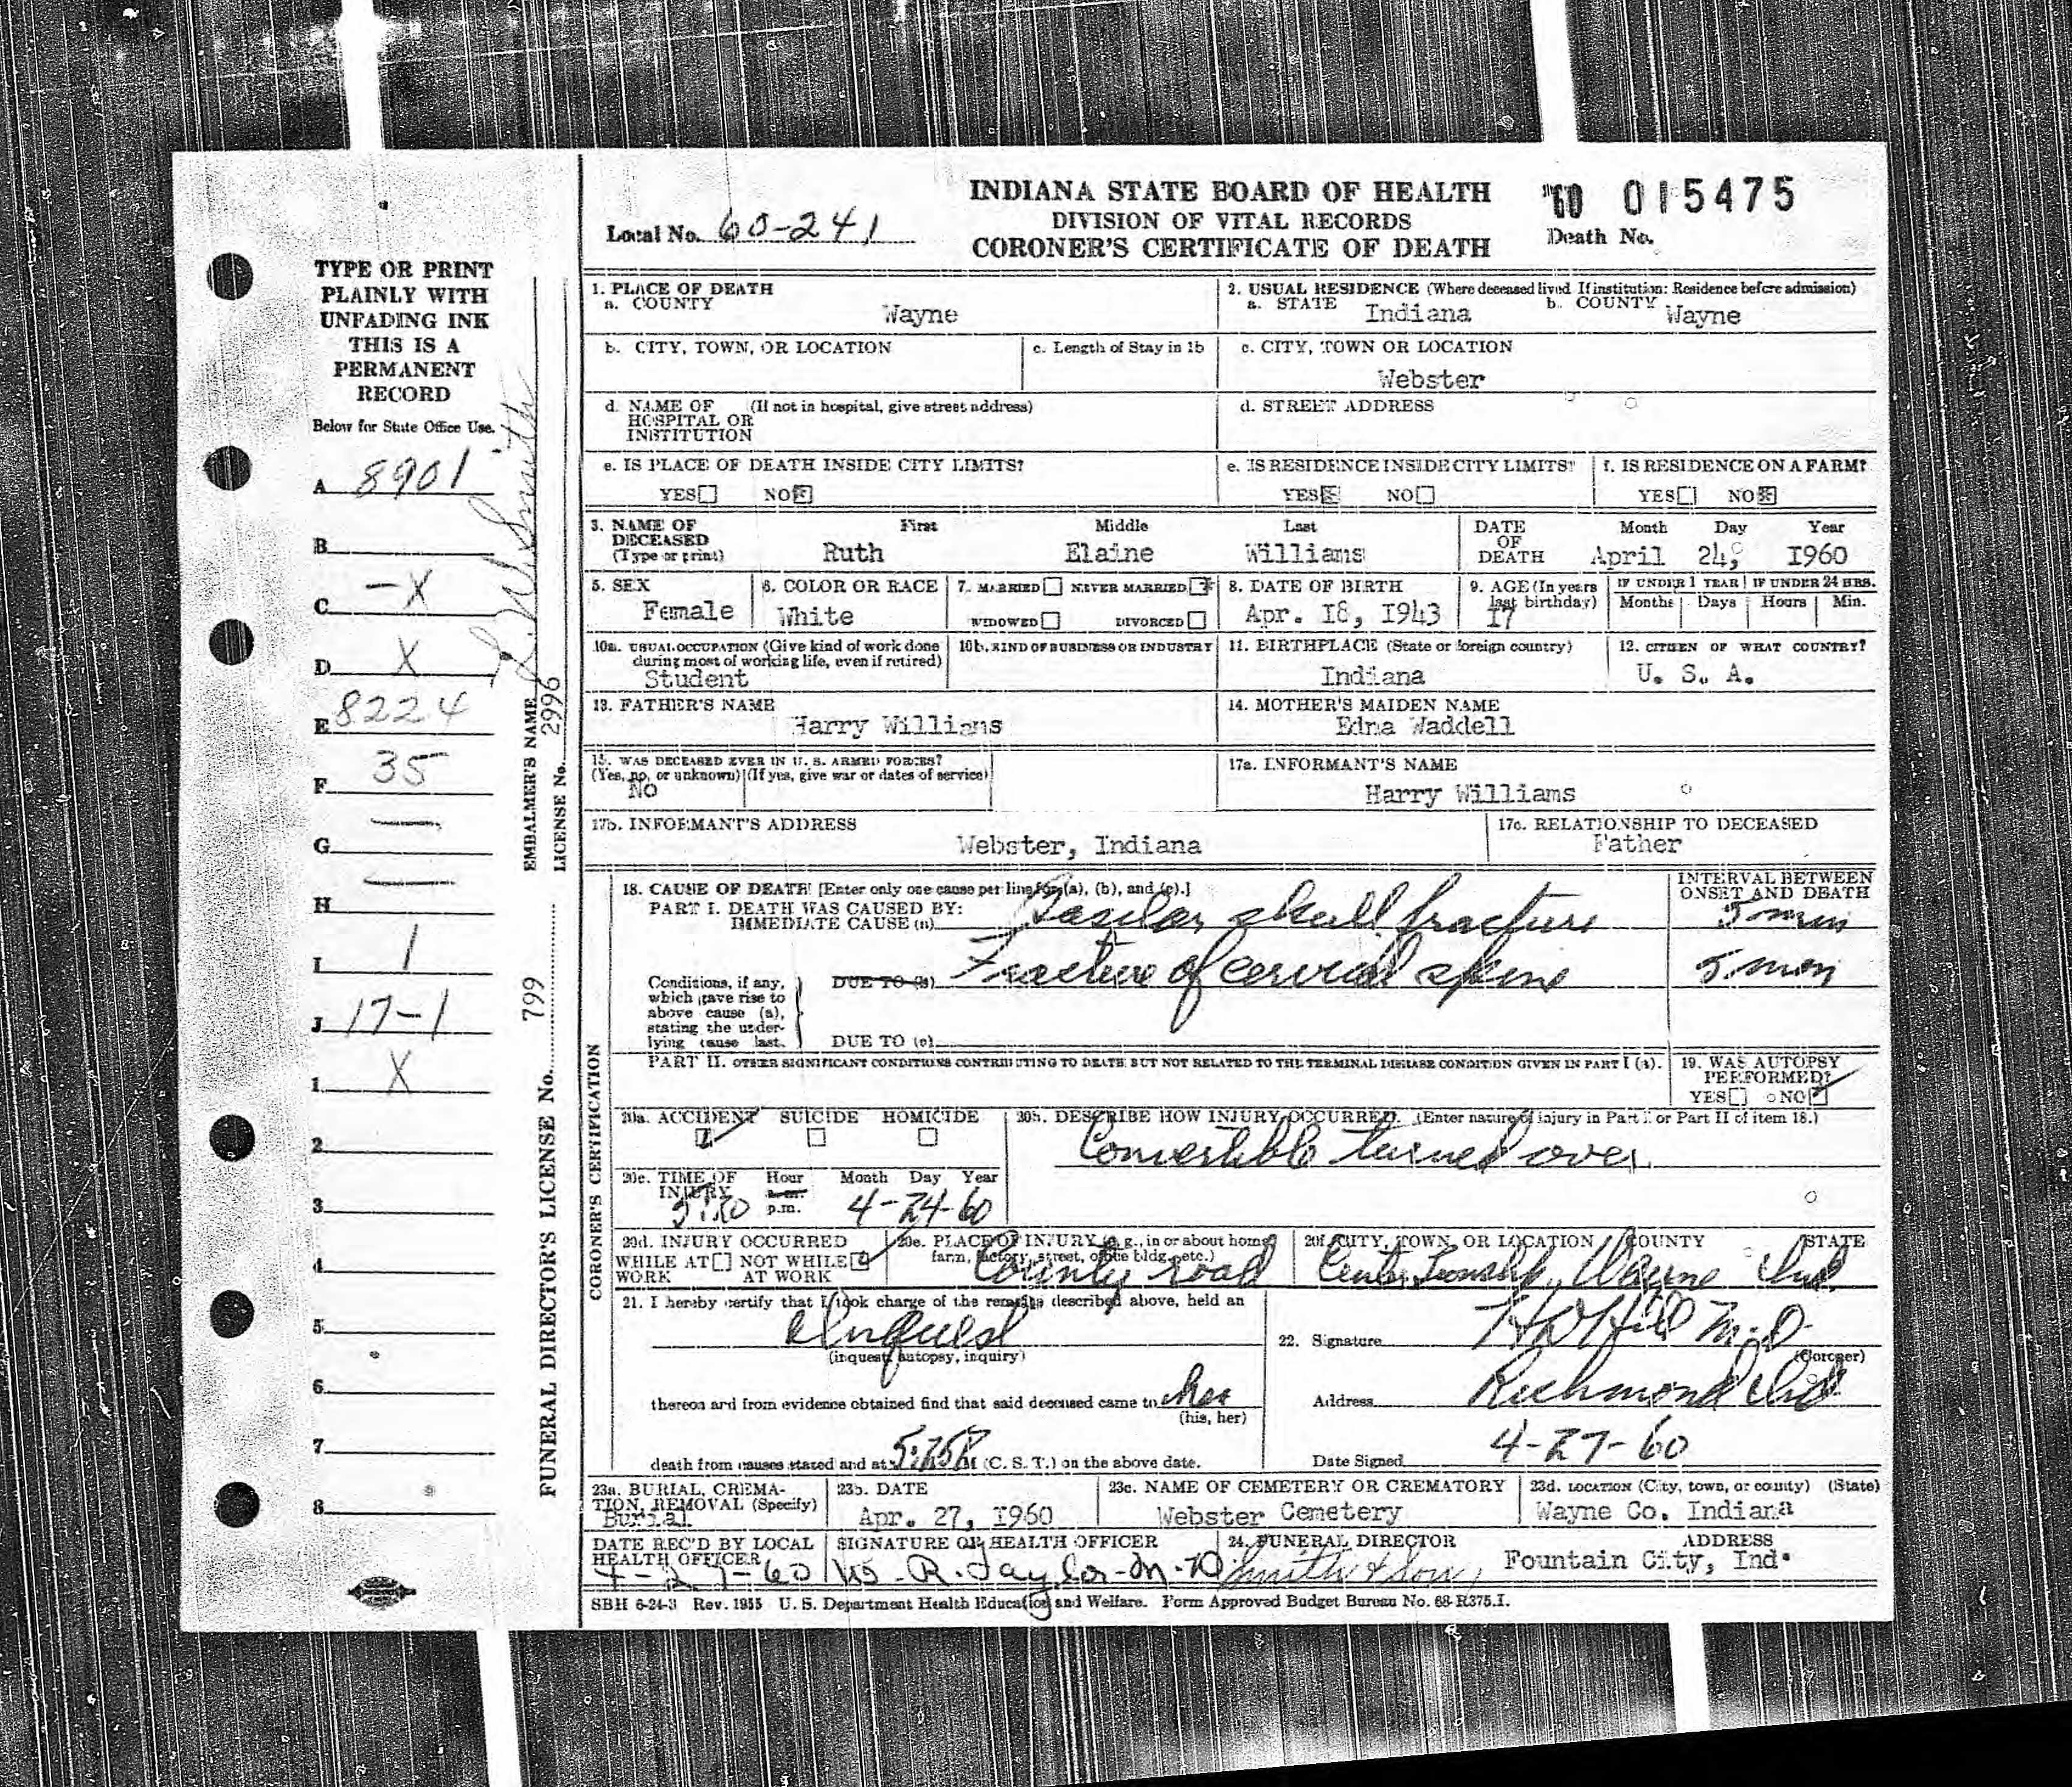 INDIANA STATE BOARD OF HEALTH
DIVISION OF VITAL RECORDS
CORONER'S CERTIFICATE OF DEATH
Local No. 60-241
'60 015475
Death No.
TYPE OR PRINT
PLAINLY WITH
UNFADING INK
THIS IS A
PERMANENT
RECORD
Below for State Office Use.
A 8901
B
C -X
D X
E 8224
F 35
G —
H —
I 1
J 17-1
1. X
2.
3.
4.
5.
6.
7.
8.
EMBALMER'S NAME Smith
LICENSE No. 2996
FUNERAL DIRECTOR'S LICENSE No. 799
1. PLACE OF DEATH
a. COUNTY Wayne
2. USUAL RESIDENCE (Where deceased lived If institution: Residence before admission)
a. STATE Indiana b. COUNTY Wayne
b. CITY, TOWN, OR LOCATION
c. Length of Stay in 1b
c. CITY, TOWN OR LOCATION
Webster
d. NAME OF (If not in hospital, give street address)
HOSPITAL OR
INSTITUTION
d. STREET ADDRESS
e. IS PLACE OF DEATH INSIDE CITY LIMITS?
YES NO X
e. IS RESIDENCE INSIDE CITY LIMITS?
YES X NO
f. IS RESIDENCE ON A FARM?
YES NO X
3. NAME OF DECEASED (Type or print)
First Middle Last
Ruth Elaine Williams
DATE OF DEATH Month Day Year
April 24, 1960
5. SEX
Female
6. COLOR OR RACE
White
7. MARRIED NEVER MARRIED X
WIDOWED DIVORCED
8. DATE OF BIRTH
Apr. 18, 1943
9. AGE (In years last birthday)
17
IF UNDER 1 YEAR IF UNDER 24 HRS.
Months Days Hours Min.
10a. USUAL OCCUPATION (Give kind of work done
during most of working life, even if retired)
Student
10b. KIND OF BUSINESS OR INDUSTRY
11. BIRTHPLACE (State or foreign country)
Indiana
12. CITIZEN OF WHAT COUNTRY?
U. S. A.
13. FATHER'S NAME
Harry Williams
14. MOTHER'S MAIDEN NAME
Edna Waddell
15. WAS DECEASED EVER IN U. S. ARMED FORCES?
(Yes, no, or unknown) (If yes, give war or dates of service)
No
17a. INFORMANT'S NAME
Harry Williams
17b. INFORMANT'S ADDRESS
Webster, Indiana
17c. RELATIONSHIP TO DECEASED
Father
CORONER'S CERTIFICATION
18. CAUSE OF DEATH [Enter only one cause per line for (a), (b), and (c).]
PART I. DEATH WAS CAUSED BY:
IMMEDIATE CAUSE (a) Basilar skull fracture
INTERVAL BETWEEN
ONSET AND DEATH
5 min
Conditions, if any,
which gave rise to
above cause (a),
stating the under-
lying cause last.
DUE TO (b) Fracture of cervical spine
5 min
DUE TO (c)
PART II. OTHER SIGNIFICANT CONDITIONS CONTRIBUTING TO DEATH BUT NOT RELATED TO THE TERMINAL DISEASE CONDITION GIVEN IN PART I (a).
19. WAS AUTOPSY
PERFORMED?
YES NO
20a. ACCIDENT SUICIDE HOMICIDE
20b. DESCRIBE HOW INJURY OCCURRED. (Enter nature of injury in Part I or Part II of item 18.)
Convertible turned over
20c. TIME OF INJURY Hour Month Day Year
a.m.
p.m. 4-24-60
20d. INJURY OCCURRED
WHILE AT WORK NOT WHILE AT WORK
20e. PLACE OF INJURY (e.g., in or about home
farm, factory, street, office bldg., etc.)
County road
20f. CITY, TOWN, OR LOCATION COUNTY STATE
Center Township, Wayne Ind.
21. I hereby certify that I took charge of the remains described above, held an
Inquest
(inquest, autopsy, inquiry)
thereon and from evidence obtained find that said deceased came to her
(his, her)
death from causes stated and at 5:25P M (C. S. T.) on the above date.
22. Signature H D Hill M.D.
(Coroner)
Address Richmond Ind
Date Signed 4-27-60
23a. BURIAL, CREMA-
TION, REMOVAL (Specify)
Burial
23b. DATE
Apr. 27, 1960
23c. NAME OF CEMETERY OR CREMATORY
Webster Cemetery
23d. LOCATION (City, town, or county) (State)
Wayne Co. Indiana
DATE REC'D BY LOCAL
HEALTH OFFICER
SIGNATURE OF HEALTH OFFICER
W. R. Taylor-M-D
24. FUNERAL DIRECTOR ADDRESS
Smith & Son, Fountain City, Ind.
SBH 6-24-3 Rev. 1955 U. S. Department Health Education and Welfare. Form Approved Budget Bureau No. 68-R375.1.